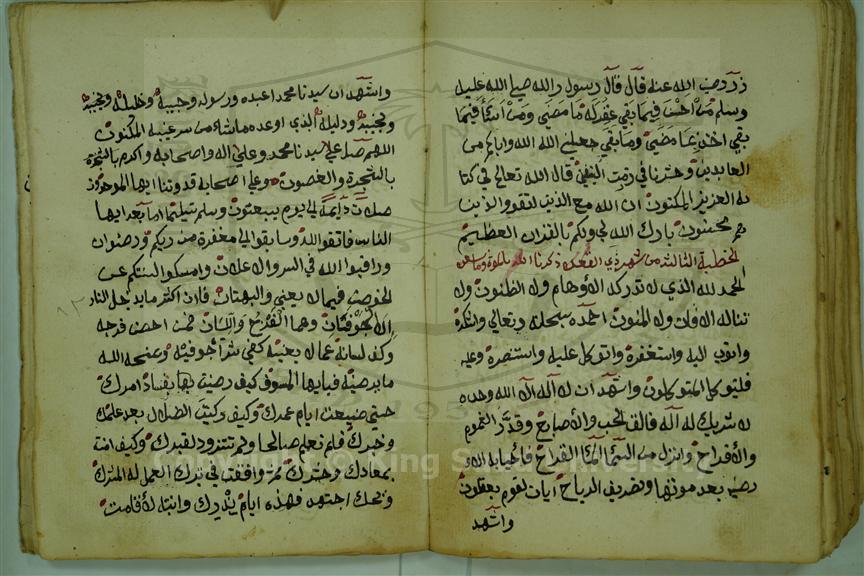 ذر رضي الله عنه قال قال رسول الله صلي الله عليه
وسلم من احسن فيما بقي غفر له ما مضي ومن أساء فيما
بقي اخذ بما مضي وما بقي جعلني الله واياكم من
العابدين وحشرنا في زمرت المتقين قال الله تعالي في كتا
به العزيز المكنون ان الله مع الذين اتقوا والذين
هم محسنون بارك الله لي ولكم بالقران العظيم
الخطبة الثالثة من شهر ذي القعدة
الحمد لله الذي لا تدركه الاوهام ولا الظنون ولا
تناله الافان ولا المنون احمده سبحانه وتعالي واشكره
واتوب اليه واستغفره واتوكل عليه واستنصره وعليه
فليتوكل المتوكلون واشهد ان لا اله الا الله وحده
لا شريك له اله فالق الحب والاصباح وقدر الغموم
والافراح وانزل من السماء الماء القراح فاحيا به الار
رض بعد موتها وتصريف الرياح ايات لقوم يعقلون
واشهد
واشهد ان سيدنا محمدا عبده ورسوله وحبيبه وخليله
ودليله الذي اودعه ماشاء من سر غيبه المكنون
اللهم صل علي سيدنا محمد وعلي اله واصحابه
بالشجرة والغصون وعلي اصحابه قدوتنا ايها الموحدون
صلات دايمة الي يوم يبعثون وسلم تسليما اما بعد ايها
الناس فاتقوا الله وسابقوا الي مغفرة من ربكم ورضوان
وراقبوا الله في السر والاعلان وامسكوا السنتكم عن
الخوض فيما لا يعني والبهتان فان اكثر ما يدخل النار
الاجوفان وهما الفرج واللسان فمن احصن فرجه
وكف لسانه عما لا يعنيه كفي شر اجوفيه ومنحه الله
ما يرضيه فيايها المسوف كيف رضيت بفساد امرك
حتي ضيعت ايام عمرك وكيف الضلال بعد علمك
وخبرك فلم تعلم صالحا ولم تتزود لقبرك وكيف انت
بمعادك وحشرك
ويحك اجتهد فهذه ايام وانتبه لاقامت